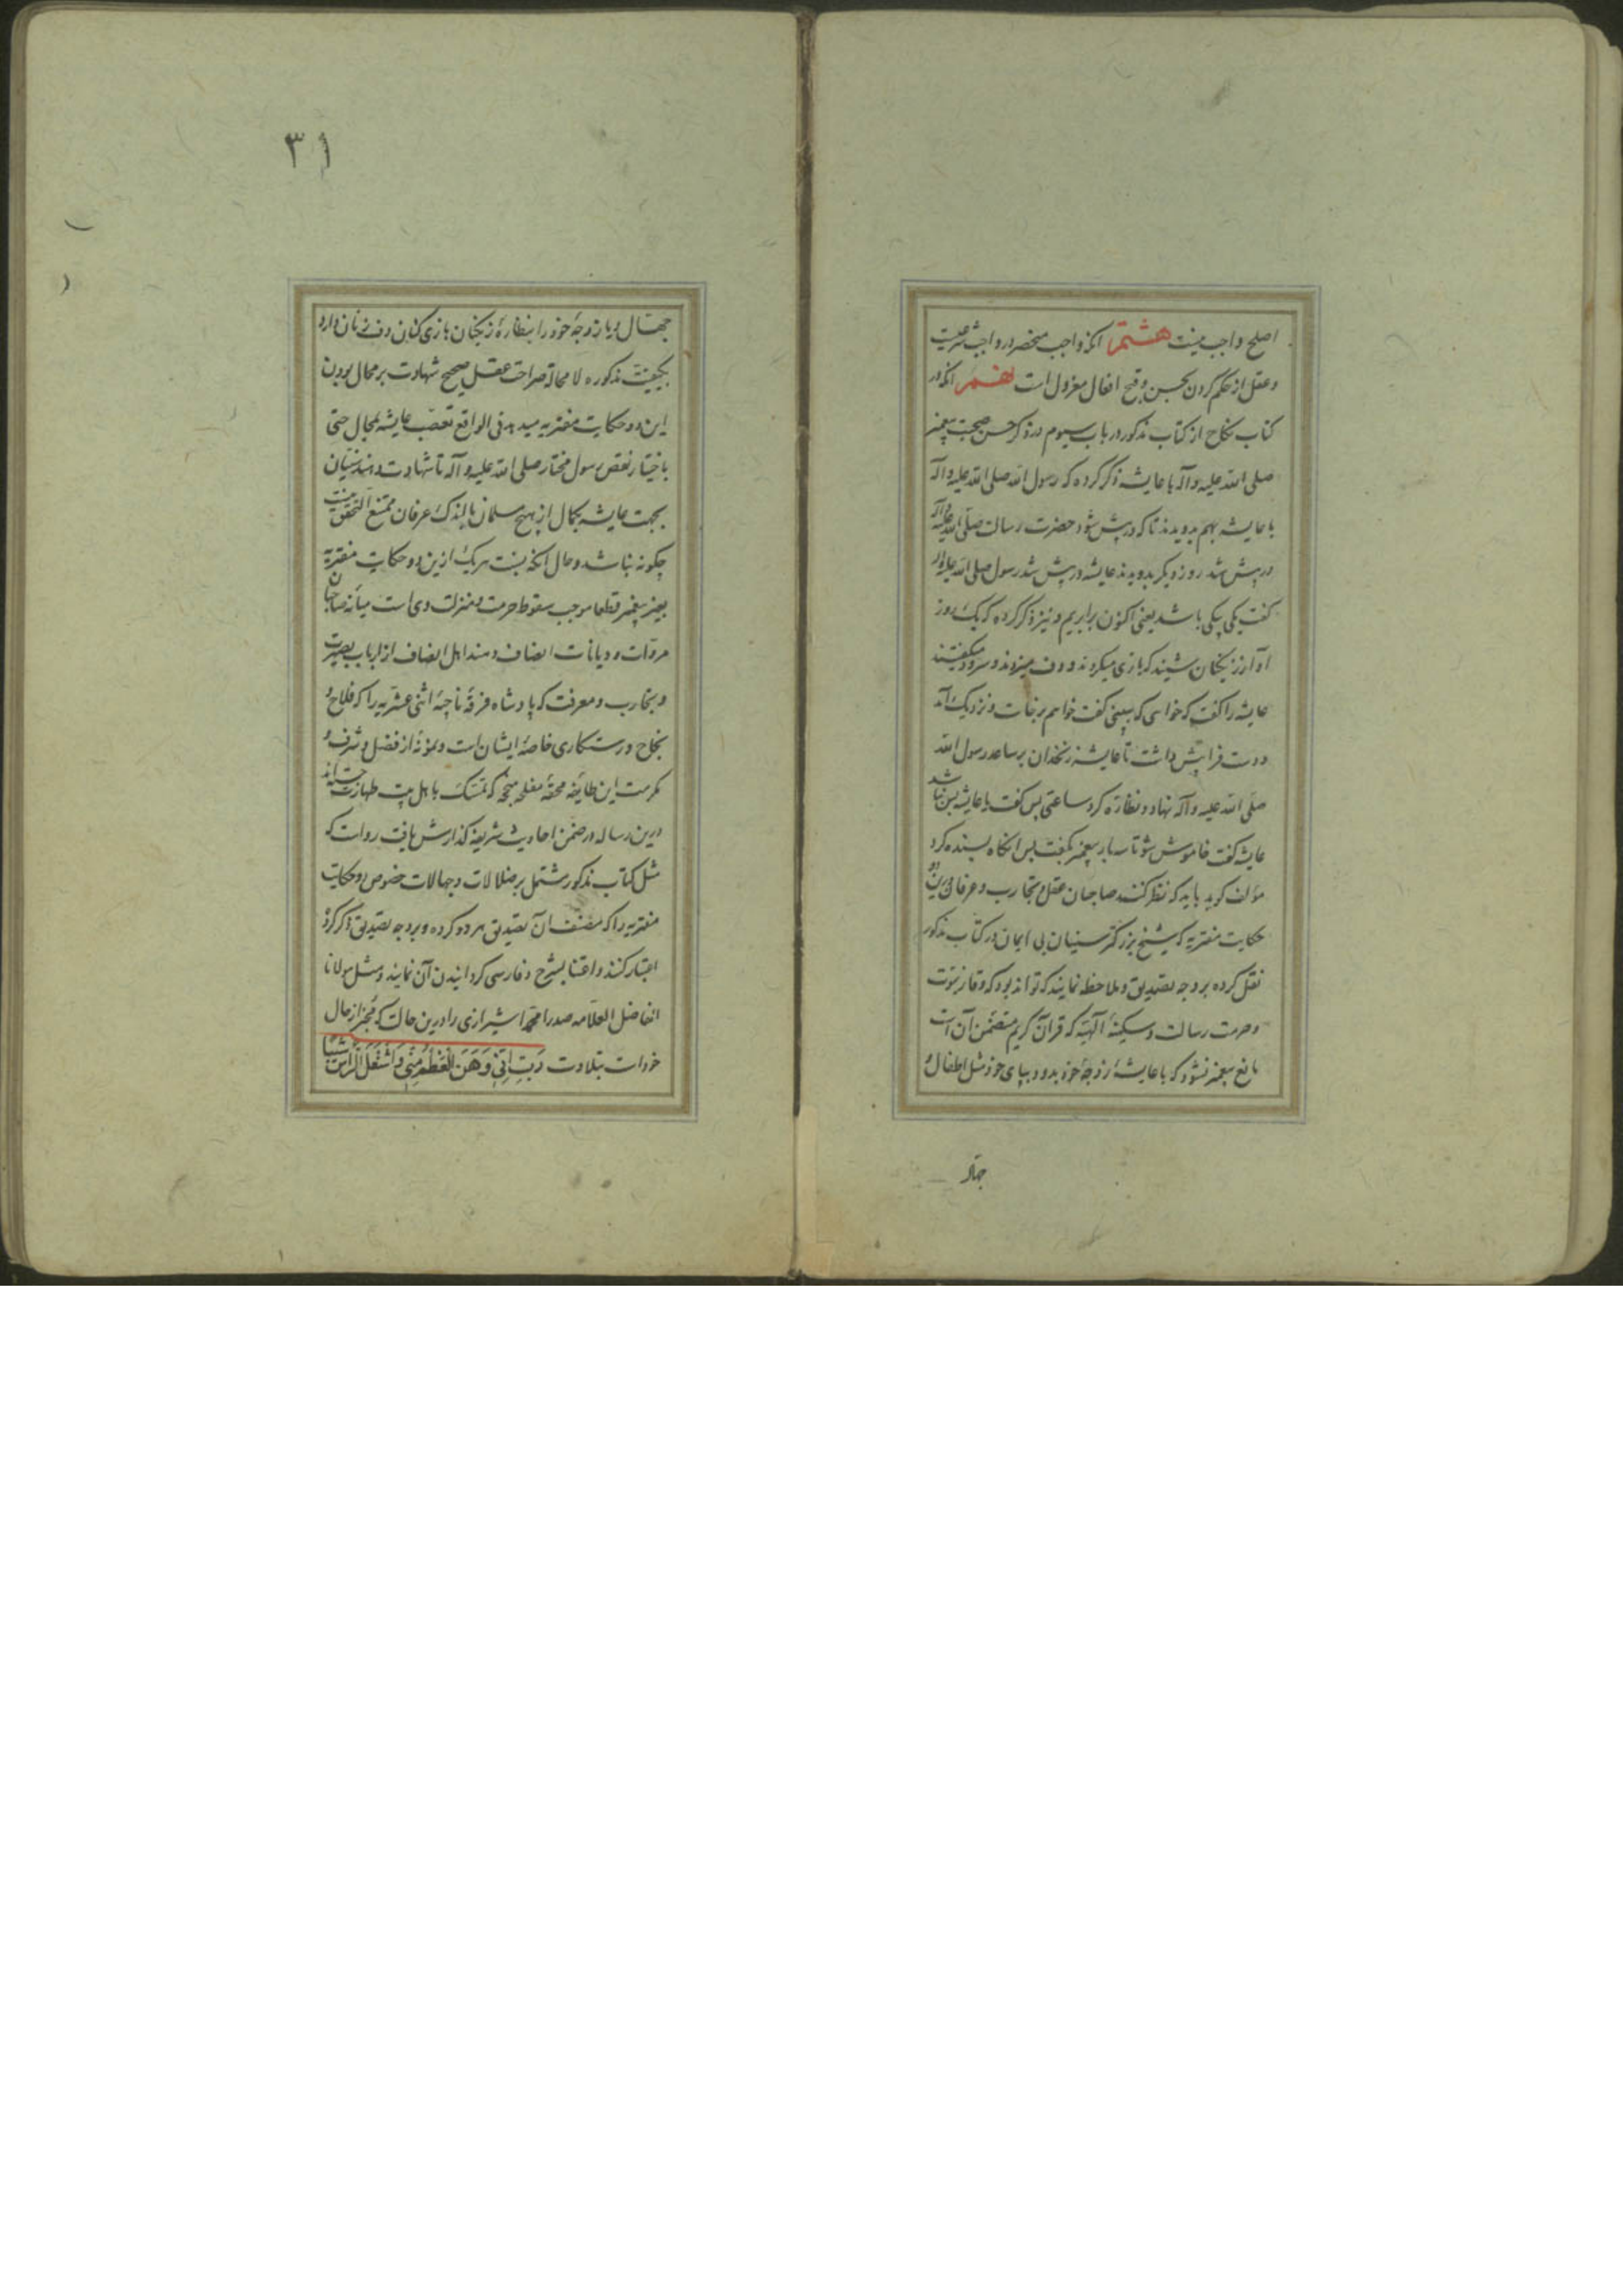 اصلح واجب نیست هشتم آنکه واجب منحصر در واجب شرعیست
و عقل از حکم کردن بحسن و قبح افعال معزول است نهم آنکه در
کتاب نکاح از کتاب مذکور در باب سیوم در ذکر حسن صحبت پیغمبر
صلی الله علیه و آله با عایشه ذکر کرده که رسول الله صلی الله علیه و آله
با عایشه بهم بدویدند تا که در پیش شود حضرت رسالت صلی الله علیه و آله
در پیش شد روز دیکر بدویدند عایشه در پیش شد رسول صلی الله علیه و آله
کفت یکی بیکی باشد یعنی اکنون برابریم و نیز ذکر کرده که یک روز
آواز زنکیان شنید که بازی میکردند و دف میزدند و سرود میکفتند
عایشه را کفت که خواهی که ببینی کفت خواهم برخاست و نزدیک آمد
و دست فرا پیش داشت تا عایشه زنخدان بر ساعد رسول الله
صلی الله علیه و آله نهاد و نظاره کرد ساعتی پس کفت یا عایشه بس نباشد
عایشه کفت خاموش شو تا سه بار پیغمبر بکفت پس آنکاه بسنده کرد
مؤلف کوید باید که نظر کنند صاحبان عقل و تجارب و عرفان درین دو
حکایت مفتریه که شیخ بزرکتر سنیان بی ایمان در کتاب مذکور
نقل کرده بر وجه تصدیق و ملاحظه نمایند که تواند بود که وقار نبوت
و حرمت رسالت و سکینهٔ الهیه که قرآن کریم متضمن آن است
مانع پیغمبر نشود که با عایشه زوجهٔ خود بدود بپای خود مثل اطفال و
جهال
۳۱
جهال و یا زوجهٔ خود را بنظارهٔ زنکیان بازی کنان دف زنان دارد
بکیفیت مذکوره لا محاله صراحت عقل صحیح شهادت بر محال بودن
این دو حکایت مفتریه میدهد فی الواقع تعصب عایشه بمحال حتی
باختیار نقص رسول مختار صلی الله علیه و آله تا شهادت دهند سنیان
بجهت عایشه بکمال از هیچ مسلمان با اندک عرفان ممتنع التحقق نیست
چکونه نباشد و حال آنکه نسبت هر یک ازین دو حکایت مفتریه
بغیر پیغمبر قطعا موجب سقوط حرمت و منزلت وی است میانه صاحبان
مروات و دیانات انصاف دهند اهل انصاف از ارباب بصیرت
و تجارب و معرفت که پادشاه فرقهٔ ناجیهٔ اثنی عشریه را که فلاح و
نجاح و رستکاری خاصهٔ ایشان است و نمونهٔ از فضل و شرف و
مکرمت این طایفه محقه مفلحه منجحه که تمسک باهل بیت طهارت جسته‌اند
درین رساله در ضمن احادیث شریفه کذارش یافت رواست که
مثل کتاب مذکور مشتمل بر ضلالات و جهالات خصوص دو حکایت
مفتریه را که مصنف آن تصدیق هر دو کرده و بر وجه تصدیق ذکر کرده
اعتبار کنند و اعتنا بشرح و فارسی کردانیدن آن نمایند و مثل مولانا
الفاضل العلامه صدرا محمد شیرازی را درین حالت که مخبر از حال
خود است بتلاوت رَبِّ اِنِّی وَهَنَ الْعَظْمُ مِنِّی وَاشْتَعَلَ الرَّأْسُ شَیْبًا